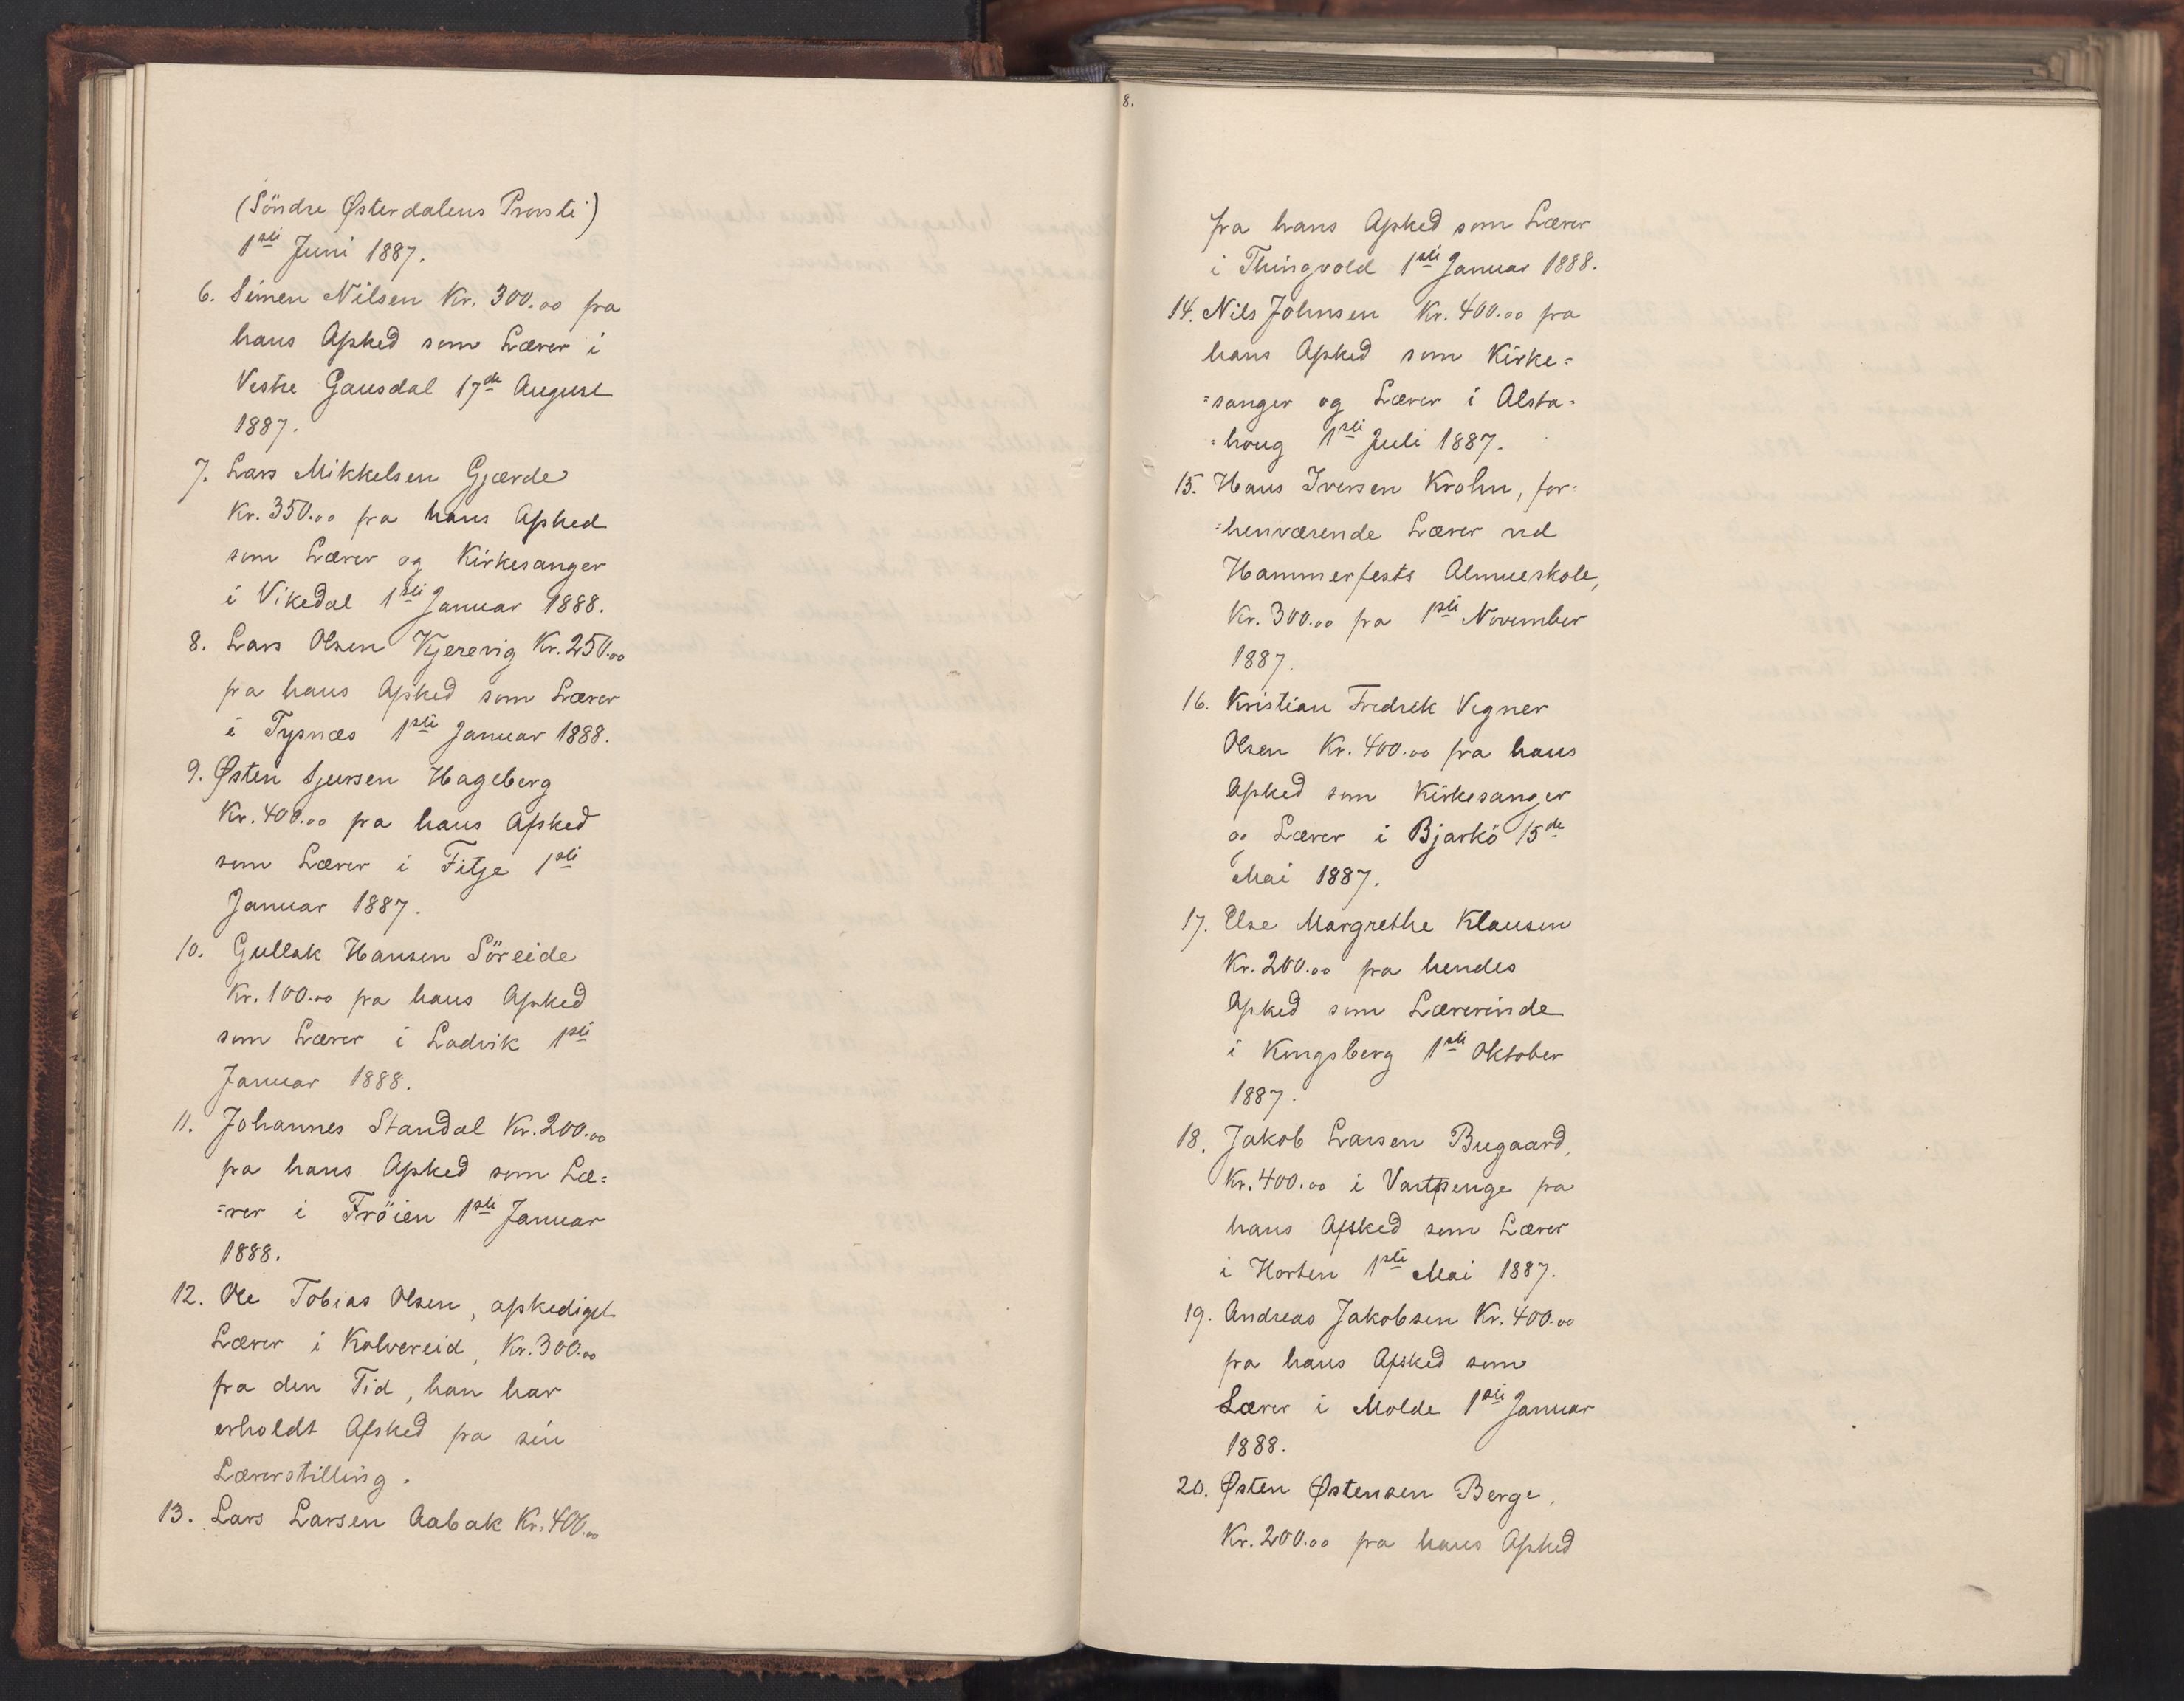 (Söndre Østerdalens Provsti)
1ste Juni 1887.
6. Simen Nilsen Kr. 300.00 fra
hans Afsked som Lærer i
Vestre Gausdal 17de August
1887.
7. Lars Mikkelsen Gjærde
Kr. 350.00 fra hans Afsked
som Lærer og Kirkesanger
i Vikedal 1sti Januar 1888.
8. Lars Olsen Kjerevig Kr. 250.00
fra hans Afsked som Lærer
i Tysnæs 1sti Januar 1888.
9. Østen Sjursen Hageberg
Kr. 400.00 fra hans Afsked
som Lærer i Fitje 1sti
Januar 1887.
10. Gullak Hansen Söreide
Kr. 100.00 fra hans Afsked
som Lærer i Ladvik 1sti
Januar 1888.
11. Johannes Standal Kr. 200.00
fra hans Afsked som Læ=
=rer i Fröien 1sti Januar
1888.
12. Ole Tobias Olsen, afskediget
Lærer i Kolvereid, Kr. 300.00
fra den Tid, han har
erholdt Afsked fra sin
Lærerstilling.
13. Lars Larsen Aabak Kr. 400.00
8.
fra hans Afsked som Lærer
i Thingvold 1sti Januar 1888.
14. Nils Johnsen Kr. 400.00 fra
hans Afsked som Kirke=
=sanger og Lærer i Alsta=
=houg 1sti Juli 1887.
15. Hans Iversen Krohn, for=
=henværende Lærer ved
Hammerfests Almueskole,
Kr. 300.00 fra 1sti November
1887.
16. Kristian Fredrik Vegner
Olsen Kr. 400.00 fra hans
Afsked som Kirkesanger
og Lærer i Bjarkö 15de
Mai 1887.
17. Else Margrethe Klausen
Kr. 200.00 fra hendes
Afsked som Lærerinde
i Kongsberg 1sti Oktober
1887.
18. Jakob Larsen Bugaard,
Kr. 400.00 i Vartpenge fra
hans Afsked som Lærer
i Horten 1sti Mai 1887.
19. Andreas Jakobsen Kr. 400.00
fra hans Afsked som
Lærer i Molde 1sti Januar
1888.
20. Østen Østensen Berge,
Kr. 200.00 fra hans Afsked